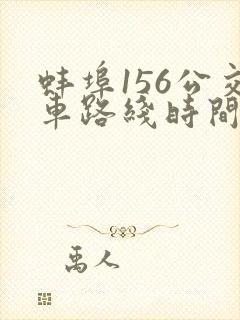 蚌埠156公交
車路綫時間
禹人